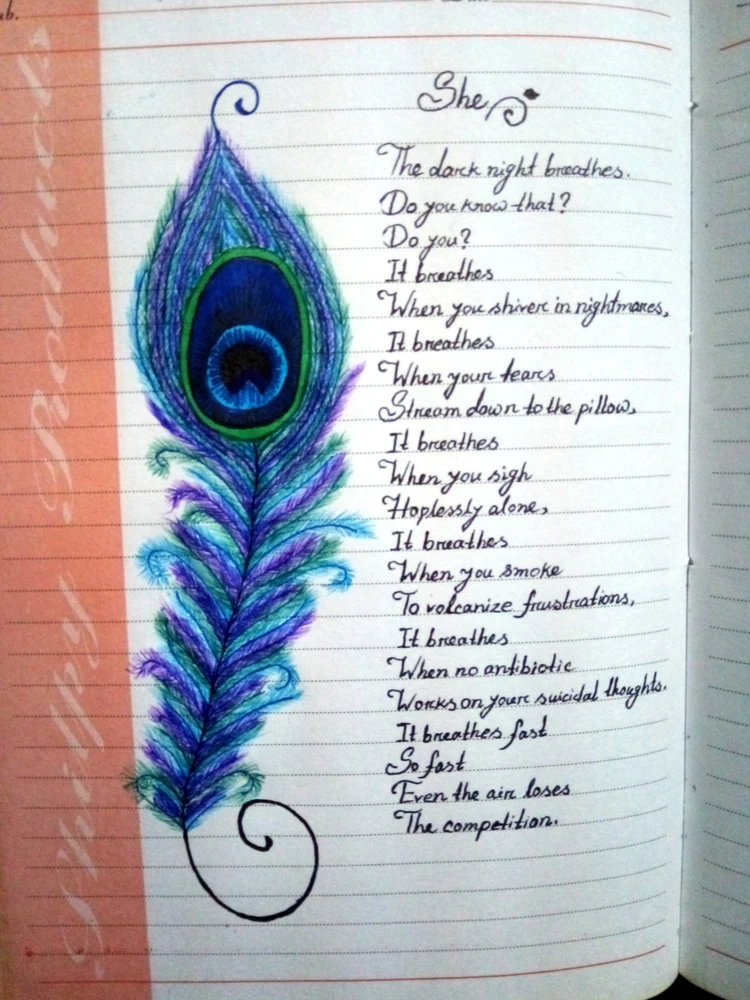 ub.
She
The dark night breathes.
Do you know that?
Do you?
It breathes
When you shiver in nightmares,
It breathes
When your tears
Stream down to the pillow,
It breathes
When you sigh
Hoplessly alone,
It breathes
When you smoke
To volcanize frustrations,
It breathes
When no antibiotic
Works on your suicidal thoughts.
It breathes fast
So fast
Even the air loses
The competition.
Shilpy Products